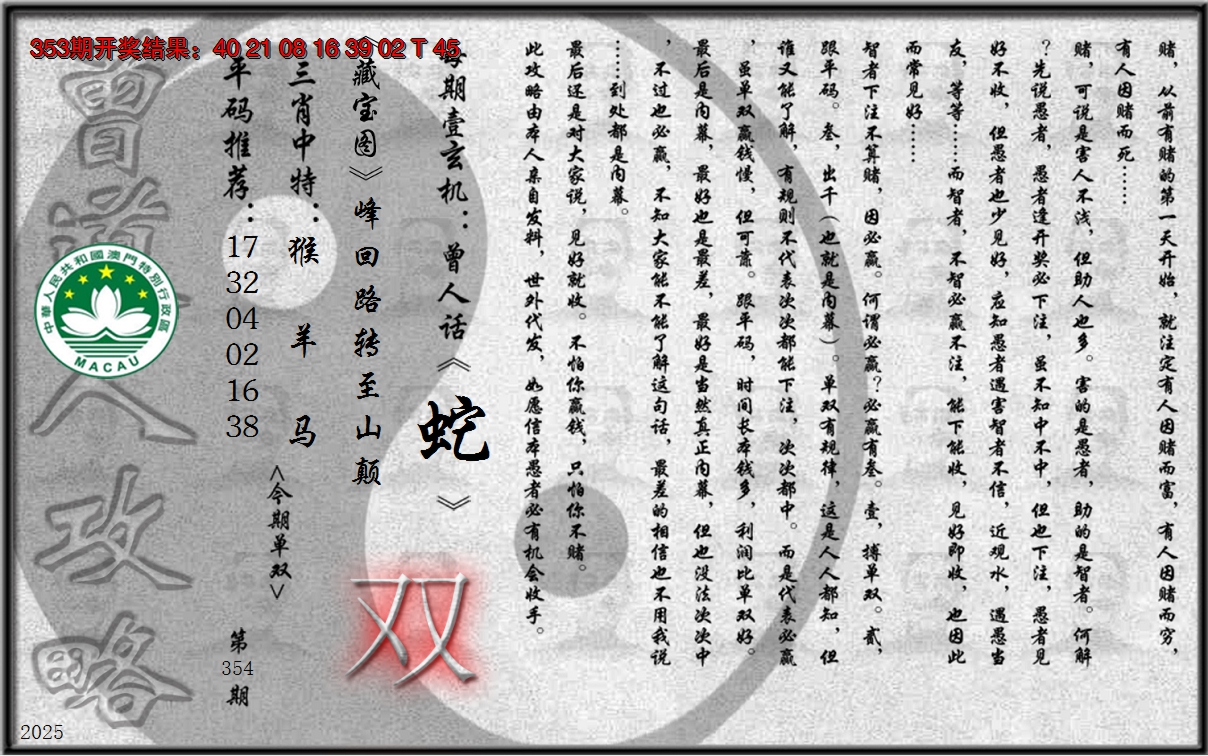 353期开奖结果：40 21 08 16 39 02 T 45
赌，从前有赌的第一天开始，就注定有人因赌而富，有人因赌而穷，
有人因赌而死……
赌，可说是害人不浅，但助人也多。害的是愚者，助的是智者。何解
？先说愚者，愚者逢开奖必下注，虽不知中不中，但也下注，愚者见
好不收，但愚者也少见好，应知愚者遇害智者不信，近观水，遇愚当
友，等等……而智者，不智必赢不注，能下能收，见好即收，也因此
而常见好……
智者下注不算赌，因必赢。何谓必赢？必赢有叁。壹，搏单双。贰，
跟平码。叁，出千（也就是内幕）。单双有规律，这是人人都知，但
谁又能了解，有规则不代表次次都能下注，次次都中。而是代表必赢
，虽单双赢钱慢，但可靠。跟平码，时间长本钱多，利润比单双好。
最后是内幕，最好也是最差，最好是当然真正内幕，但也没法次次中
，不过也必赢，不知大家能不能了解这句话，最差的相信也不用我说
……到处都是内幕。
最后还是对大家说，见好就收。不怕你赢钱，只怕你不赌。
此攻略由本人亲自发料，世外代发，如愿信本愚者必有机会收手。
每期壹玄机：曾人话《蛇》
《藏宝图》峰回路转至山颠
双
三肖中特：猴 羊 马
<今期单双>
平码推荐：17 32 04 02 16 38
第354期
曾道人攻略
中華人民共和國澳門特別行政區
MACAU
2025